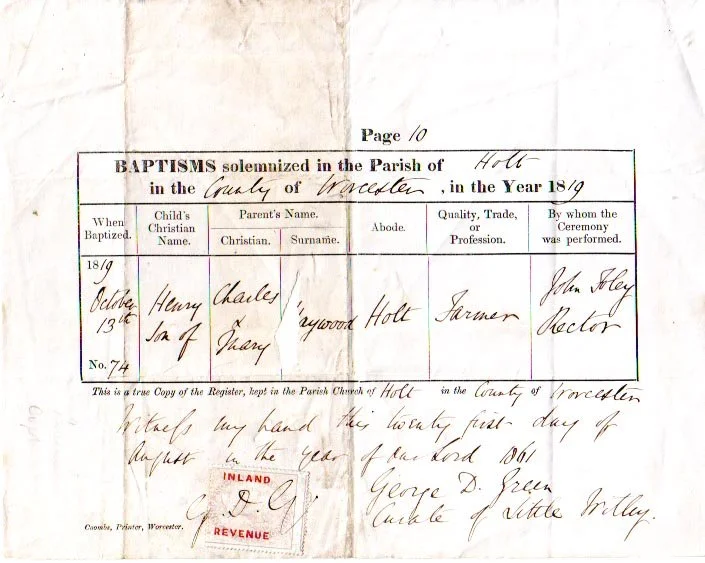 Page 10
BAPTISMS solemnized in the Parish of Holt
in the County of Worcester, in the Year 1819
When Baptized.
Child's Christian Name.
Parent's Name.
Christian.
Surname.
Abode.
Quality, Trade, or Profession.
By whom the Ceremony was performed.
1819
October
13th
No. 74
Henry
Son of
Charles
&
Mary
aywood
Holt
Farmer
John Foley
Rector
This is a true Copy of the Register, kept in the Parish Church of Holt in the County of Worcester
Witness my hand this twenty first day of
August in the year of our Lord 1861
George D. Green
Curate of Little Witley.
G. D. G
INLAND
REVENUE
Coombs, Printer, Worcester.